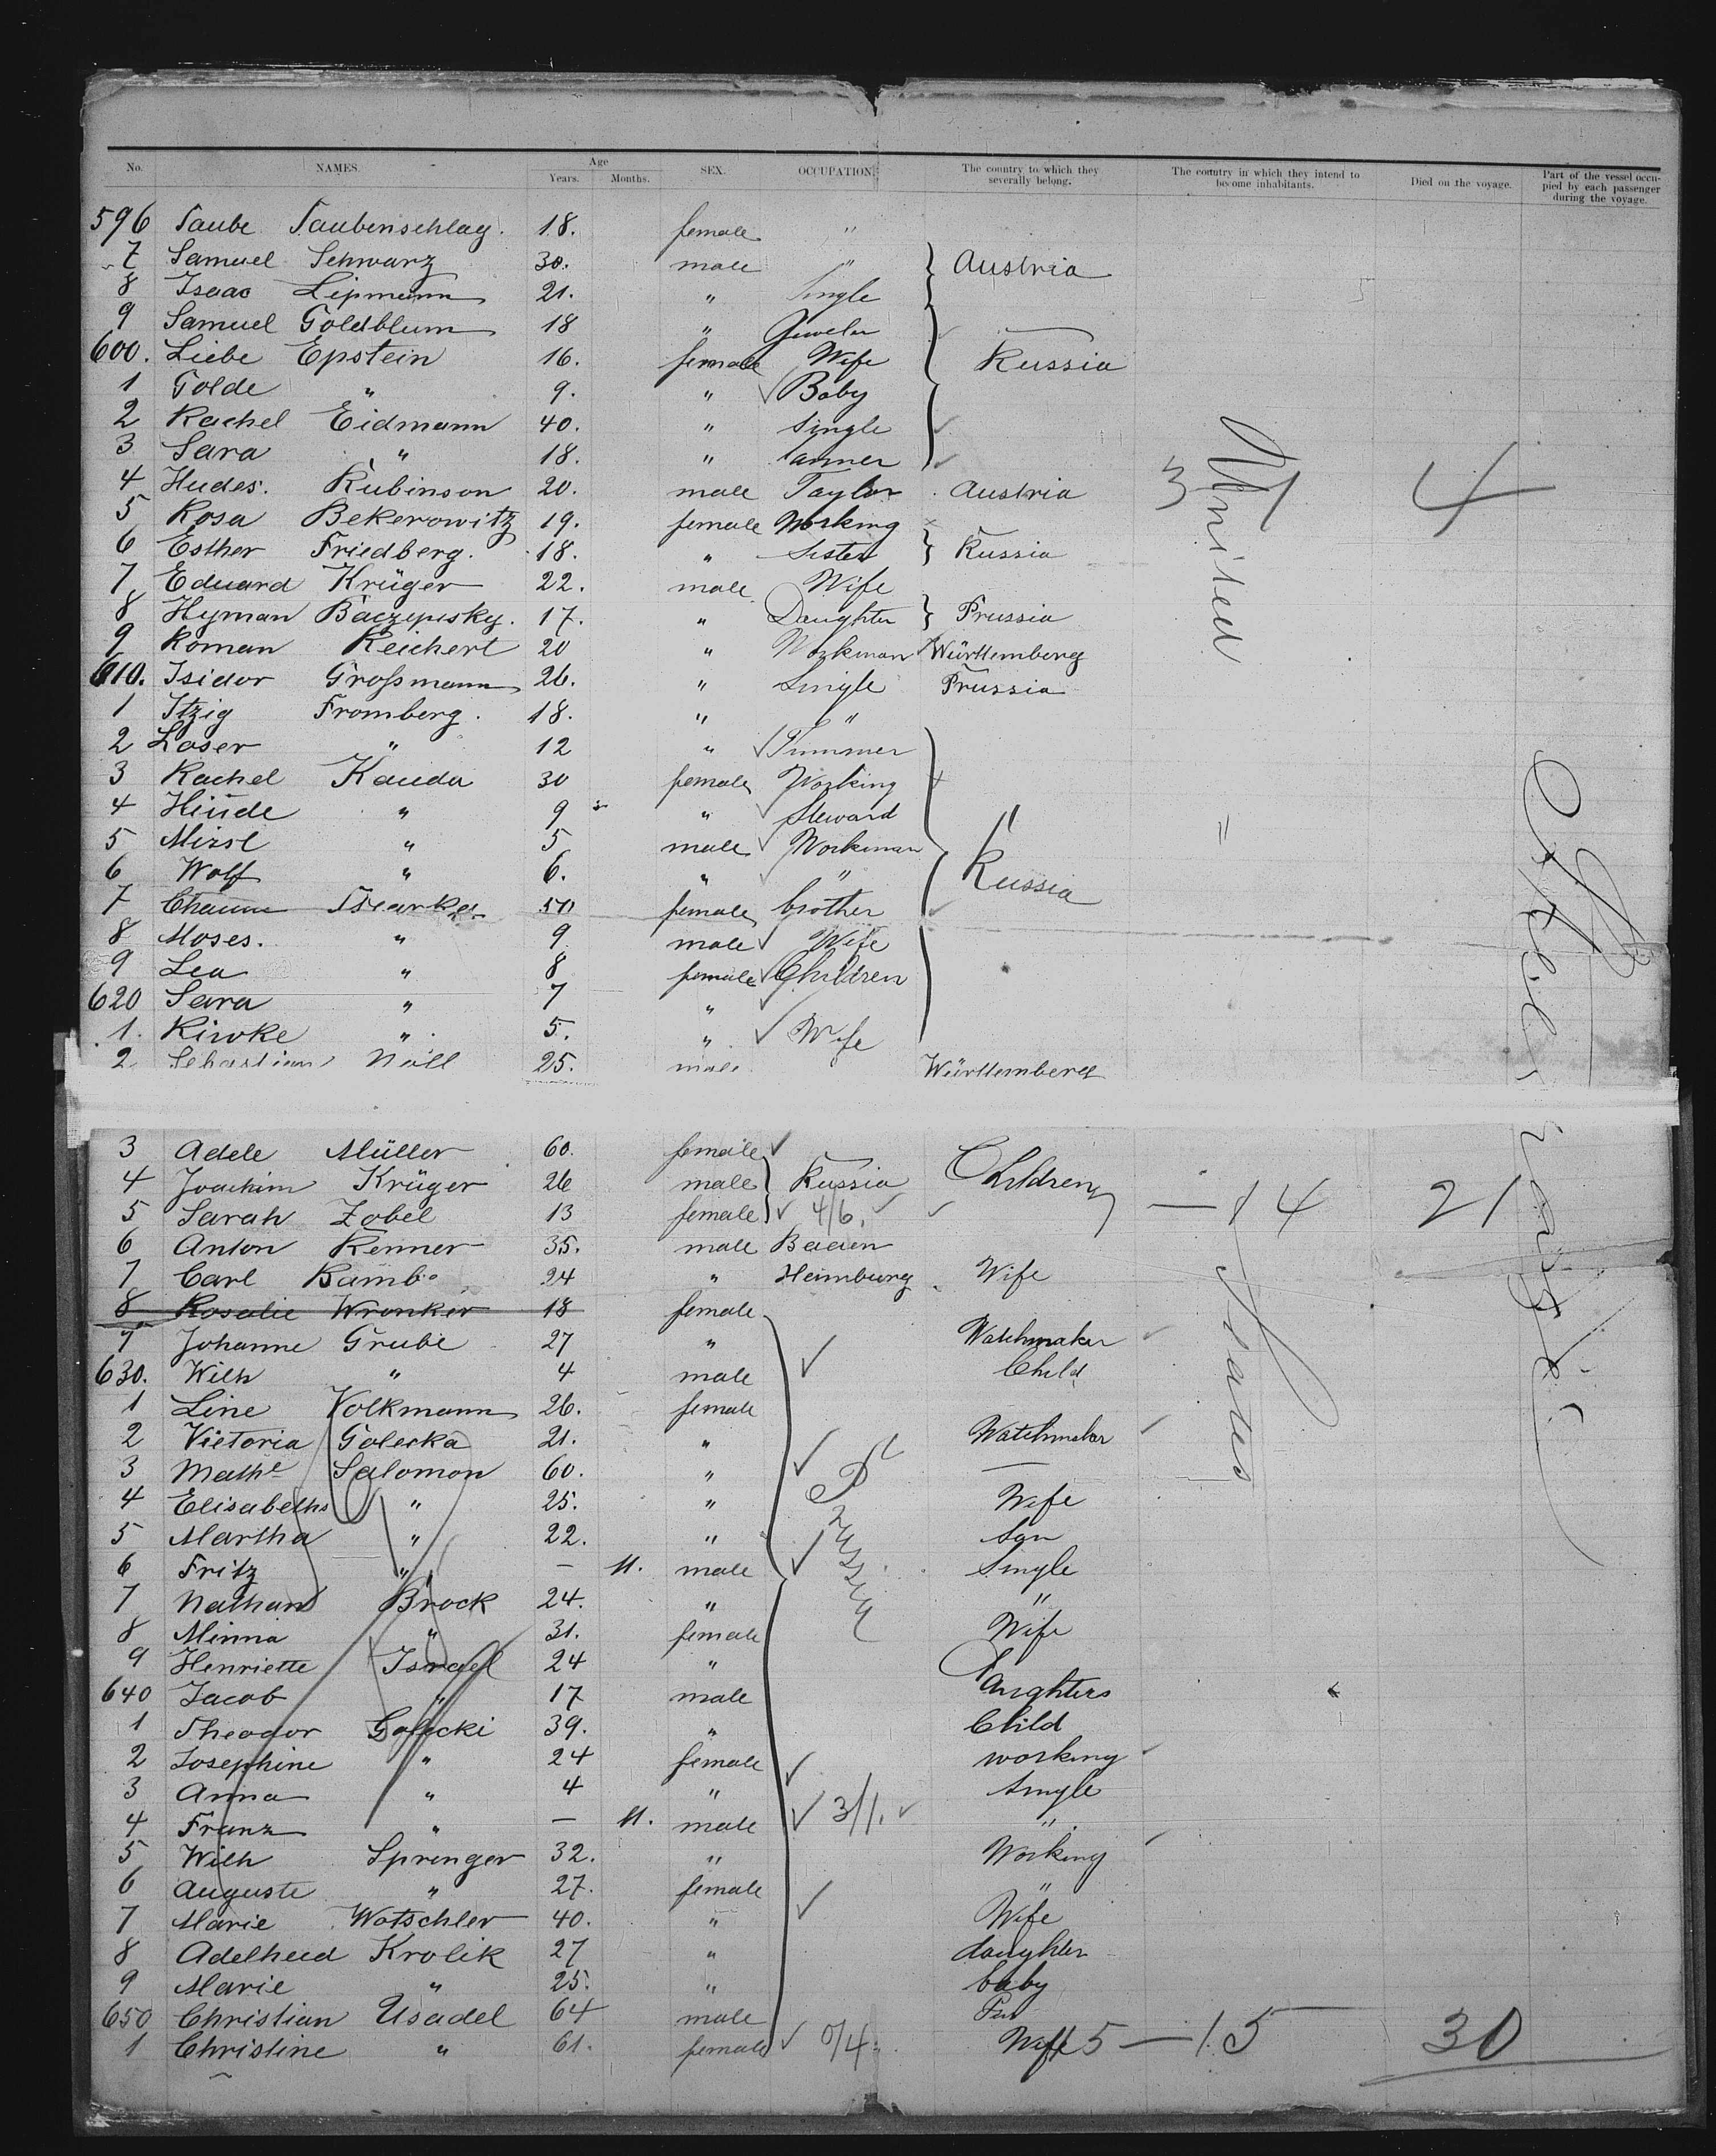 No. NAMES. Age Years. Months. SEX. OCCUPATION. The country to which they severally belong. The country in which they intend to become inhabitants. Died on the voyage. Part of the vessel occupied by each passenger during the voyage.
596 Taube Taubenschlag. 18. female "
7 Samuel Schwarz 30. male " } Austria
8 Isaac Lipmann 21. " Single
9 Samuel Goldblum 18 " Jeweler
600. Liebe Epstein 16. female Wife } Russia
1 Golde " 9. " Baby
2 Rachel Eidmann 40. " Single
3 Sara " 18. "
4 Hudes. Rubinson 20. male Taylor Austria
5 Rosa Bekerowitz 19. female Working
6 Esther Friedberg. 18. " Sister } Russia
7 Eduard Krüger 22. male Wife
8 Hyman 17. " Daughter } Prussia
9 Roman Reichert 20 " Workman Württemberg
610. Isidor Großmann 26. " Single Prussia
1 Itzig Fromberg. 18. " "
2 Laser " 12 "
3 Rachel Kauda 30 female Working
4 Hinde " 9 " Steward
5 Mirsl " 5 male Workman
6 Wolf " 6. " " Russia
7 50 female brother
8 Moses. " 9 male Wife
9 Lea " 8 female Children
620 Sara " 7 "
1. Riwke " 5. " Wife
2 Sebastian Nöll 25. male Württemberg
United
States
3 Adele Müller 60. female
4 Joachim Krüger 26 male } Russia Children 14 21
5 Sarah Zobel 13 female 4/6.
6 Anton Renner 35. male Baden
7 Carl 24 " Hamburg Wife
8 Rosalie Wronker 18 female
9 Johanne Grube 27 " Watchmaker
630. Wilh " 4 male Child
1 Line Volkmann 26. female
2 Victoria Golecka 21. " Watchmaker
3 Mathe Salomon 60. " —
4 Elisabeth " 25. " Wife
5 Martha " 22. " Son
6 Fritz " — 11. male Single
Prussia
7 Nathan Brock 24. " "
8 Minna " 31. female Wife
9 Henriette Israel 24 "
640 Jacob " 17 male Daughters
1 Theodor Golecki 39. " Child
2 Josephine " 24 female working
3 Anna " 4 " Single
4 Franz " — 11. male 3/1. "
5 Wilh Springer 32. " Working
6 Auguste " 27. female "
7 Marie Wotschler 40. " Wife
8 Adelheid Krolik 27 " daughter
9 Marie " 25. " baby
650 Christian Usadel 64 male
1 Christine " 61. female 0/4. Wife 5 — 15 30